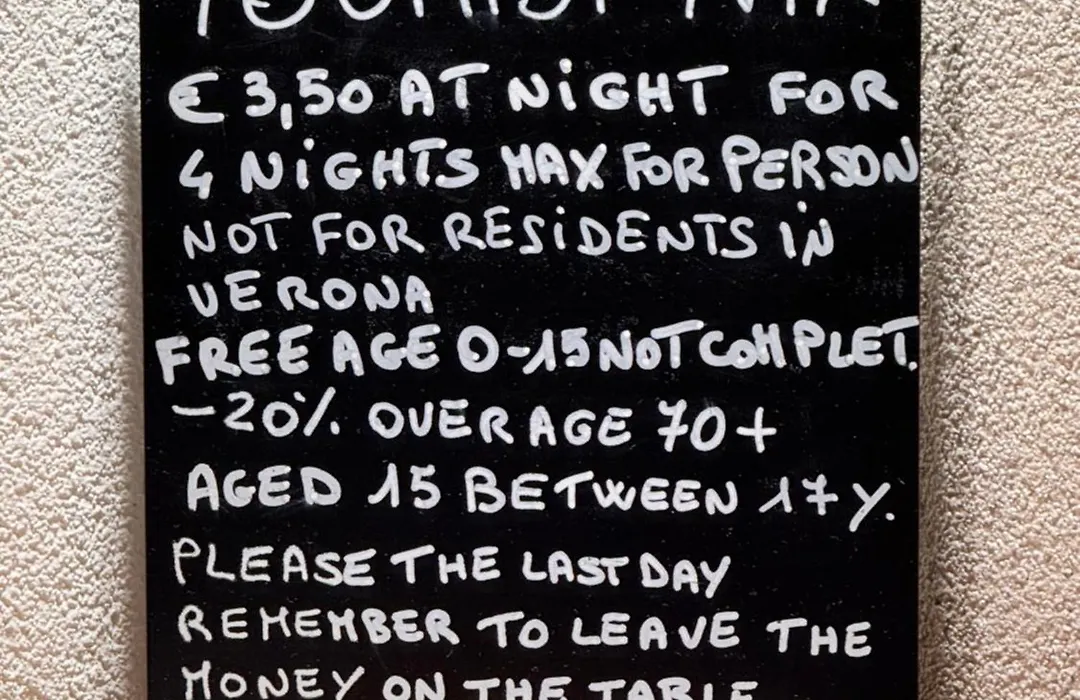 TOURIST TAX
€ 3,50 AT NiGHT FOR
4 NiGHTS MAX FOR PERSON
NOT FOR RESiDENTS iN
VERONA
FREE AGE 0-15 NOT COMPLET.
-20% OVER AGE 70+
AGED 15 BETWEEN 17 Y.
PLEASE THE LAST DAY
REMEMBER TO LEAVE THE
MONEY ON THE TABLE